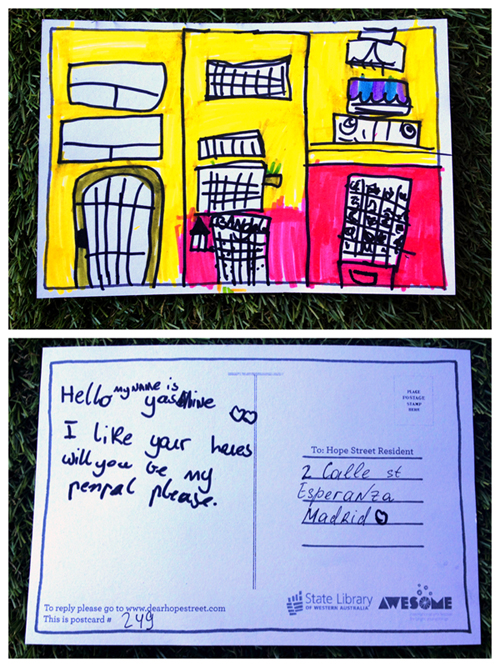 Hello MY NAME is
yasmine
I like your houes
will you be my
penpal please.
PLACE
POSTAGE
STAMP
HERE
To: Hope Street Resident
2 Calle st
Esperanza
Madrid
To reply please go to www.dearhopestreet.com
This is postcard # 249
State Library
OF WESTERN AUSTRALIA
AWESOME